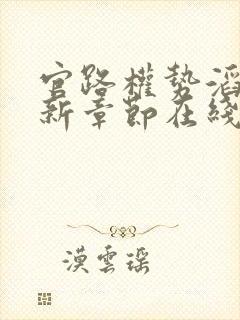 官路權勢滔
新章節在綫
漠雲瑶